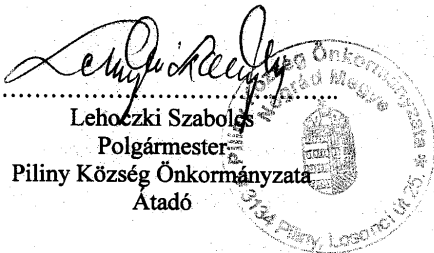 Lehoczki Szabolcs
Polgármester
Piliny Község Önkormányzata
Átadó
Piliny Község Önkormányzata * 3134 Piliny, Losonci út 25.
Nógrád Megye